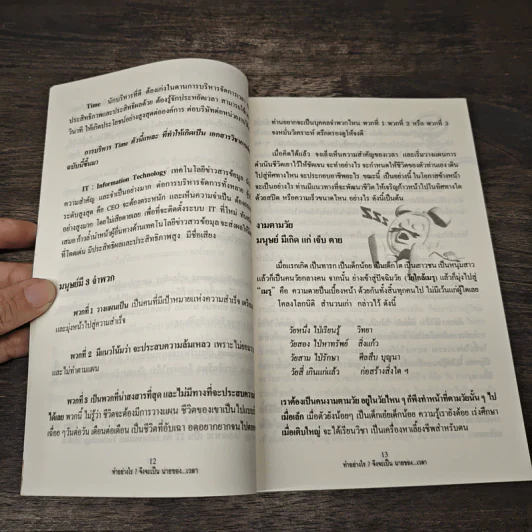 Time นักบริหารที่ดี ต้องเก่งในด้านการบริหารจัดการเวลา
ประสิทธิภาพและประสิทธิผลด้วย ต้องรู้จักประหยัดเวลา สามารถใช้
วินาที ให้เกิดประโยชน์อย่างสูงสุดต่อองค์กร ต่อบริษัทต่อหน่วยงาน
การบริหาร Time ตัวนี้แหละ ที่ทำให้เกิดเป็น เอกสารวิชาการ
ฉบับนี้ขึ้นมา
IT : Information Technology เทคโนโลยีข่าวสารข้อมูล
ความสำคัญ และจำเป็นอย่างมาก ต่อการบริหารจัดการทั้งหลาย
ระดับสูงสุด คือ CEO จะต้องตระหนัก และเห็นความจำเป็น
อย่างสูงมาก โดยไม่เสียดายเลย เพื่อที่จะติดตั้งระบบ IT ที่ใหม่ ทันสมัย
เสมอ ก้าวล้ำนำหน้าคู่อื่นทางด้านเทคโนโลยีข่าวสารข้อมูล จะส่งผลให้
ที่โดดเด่น มีประสิทธิผลและประสิทธิภาพสูง มีชื่อเสียง
มนุษย์มี 3 จำพวก
พวกที่ 1 วางแผนเป็น เป็นคนที่มีเป้าหมายแห่งความสำเร็จ
และมุ่งหน้าไปสู่ความสำเร็จ
พวกที่ 2 มีแนวโน้มว่า จะประสบความล้มเหลว เพราะไม่
และไม่ทำตามแผน
พวกที่ 3 เป็นพวกที่น่าสงสารที่สุด และไม่มีทางที่จะประสบความ
ได้เลย พวกนี้ ไม่รู้ว่า ชีวิตจะต้องมีการวางแผน ชีวิตของเขาเป็นไป
เฉื่อย ๆ วันต่อวัน เดือนต่อเดือน เป็นชีวิตที่อับเฉา อดอยากยากจนไปตลอด
12
ทำอย่างไร ? จึงจะเป็น นายของ...เวลา
ท่านอยากจะเป็นบุคคลจำพวกไหน พวกที่ 1 พวกที่ 2 หรือ พวกที่ 3
จงหมั่นวิเคราะห์ ตรึกตรองดูให้จงดี
เมื่อคิดได้แล้ว จงเล็งเห็นความสำคัญของเวลา และเริ่มวางแผนการ
ดำเนินชีวิตเอาไว้ให้ชัดเจน จะทำอะไร อย่างไร จะกำหนดให้ชีวิตของตัวท่านเอง เดิน
ไปสู่ทิศทางไหน จะประกอบอาชีพอะไร ขณะนี้ เป็นอย่างนี้ ในโอกาสข้างหน้า
จะเป็นอย่างไร ท่านมีแนวทางที่จะพัฒนาชีวิต ให้เจริญก้าวหน้าไปในทิศทางใด
ด้วยสปีด หรือความเร็วขนาดไหน อย่างไร ดังนี้เป็นต้น
งามตามวัย
มนุษย์ มีเกิด แก่ เจ็บ ตาย
เมื่อแรกเกิด เป็นทารก เป็นเด็กน้อย เป็นเด็กโต เป็นสาวชน เป็นหนุ่มสาว
แล้วก็เป็นคนวัยกลางคน จากนั้น ย่างเข้าสู่ปัจฉิมวัย (วัยใกล้เมรุ) แล้วก็มุ่งไปสู่
"เมรุ" คือ ความตายเป็นเบื้องหน้า ด้วยกันทั้งสิ้นทุกคนไป ไม่มีเว้นแก่ผู้ใดเลย
โคลงโลกนิติ สำนวนเก่า กล่าวไว้ ดังนี้
วัยหนึ่ง ไป่เรียนรู้ วิทยา
วัยสอง ไป่หาทรัพย์ สิ่งแก้ว
วัยสาม ไป่รักษา ศีลสืบ บุญนา
วัยสี่ เกินแก่แล้ว ก่อสร้างสิ่งใด ฯ
เราต้องเป็นคนงามตามวัย อยู่ในวัยไหน ๆ ก็พึงทำหน้าที่ตามวัยนั้น ๆ ไป
เมื่อเล็ก เมื่อตัวยังน้อยๆ เป็นเด็กเอ๋ยเด็กน้อย ความรู้เรายังด้อย เร่งศึกษา
เมื่อเติบใหญ่ จะได้เรียนวิชา เป็นเครื่องหาเลี้ยงชีพสำหรับตน
13
ทำอย่างไร ? จึงจะเป็น นายของ...เวลา